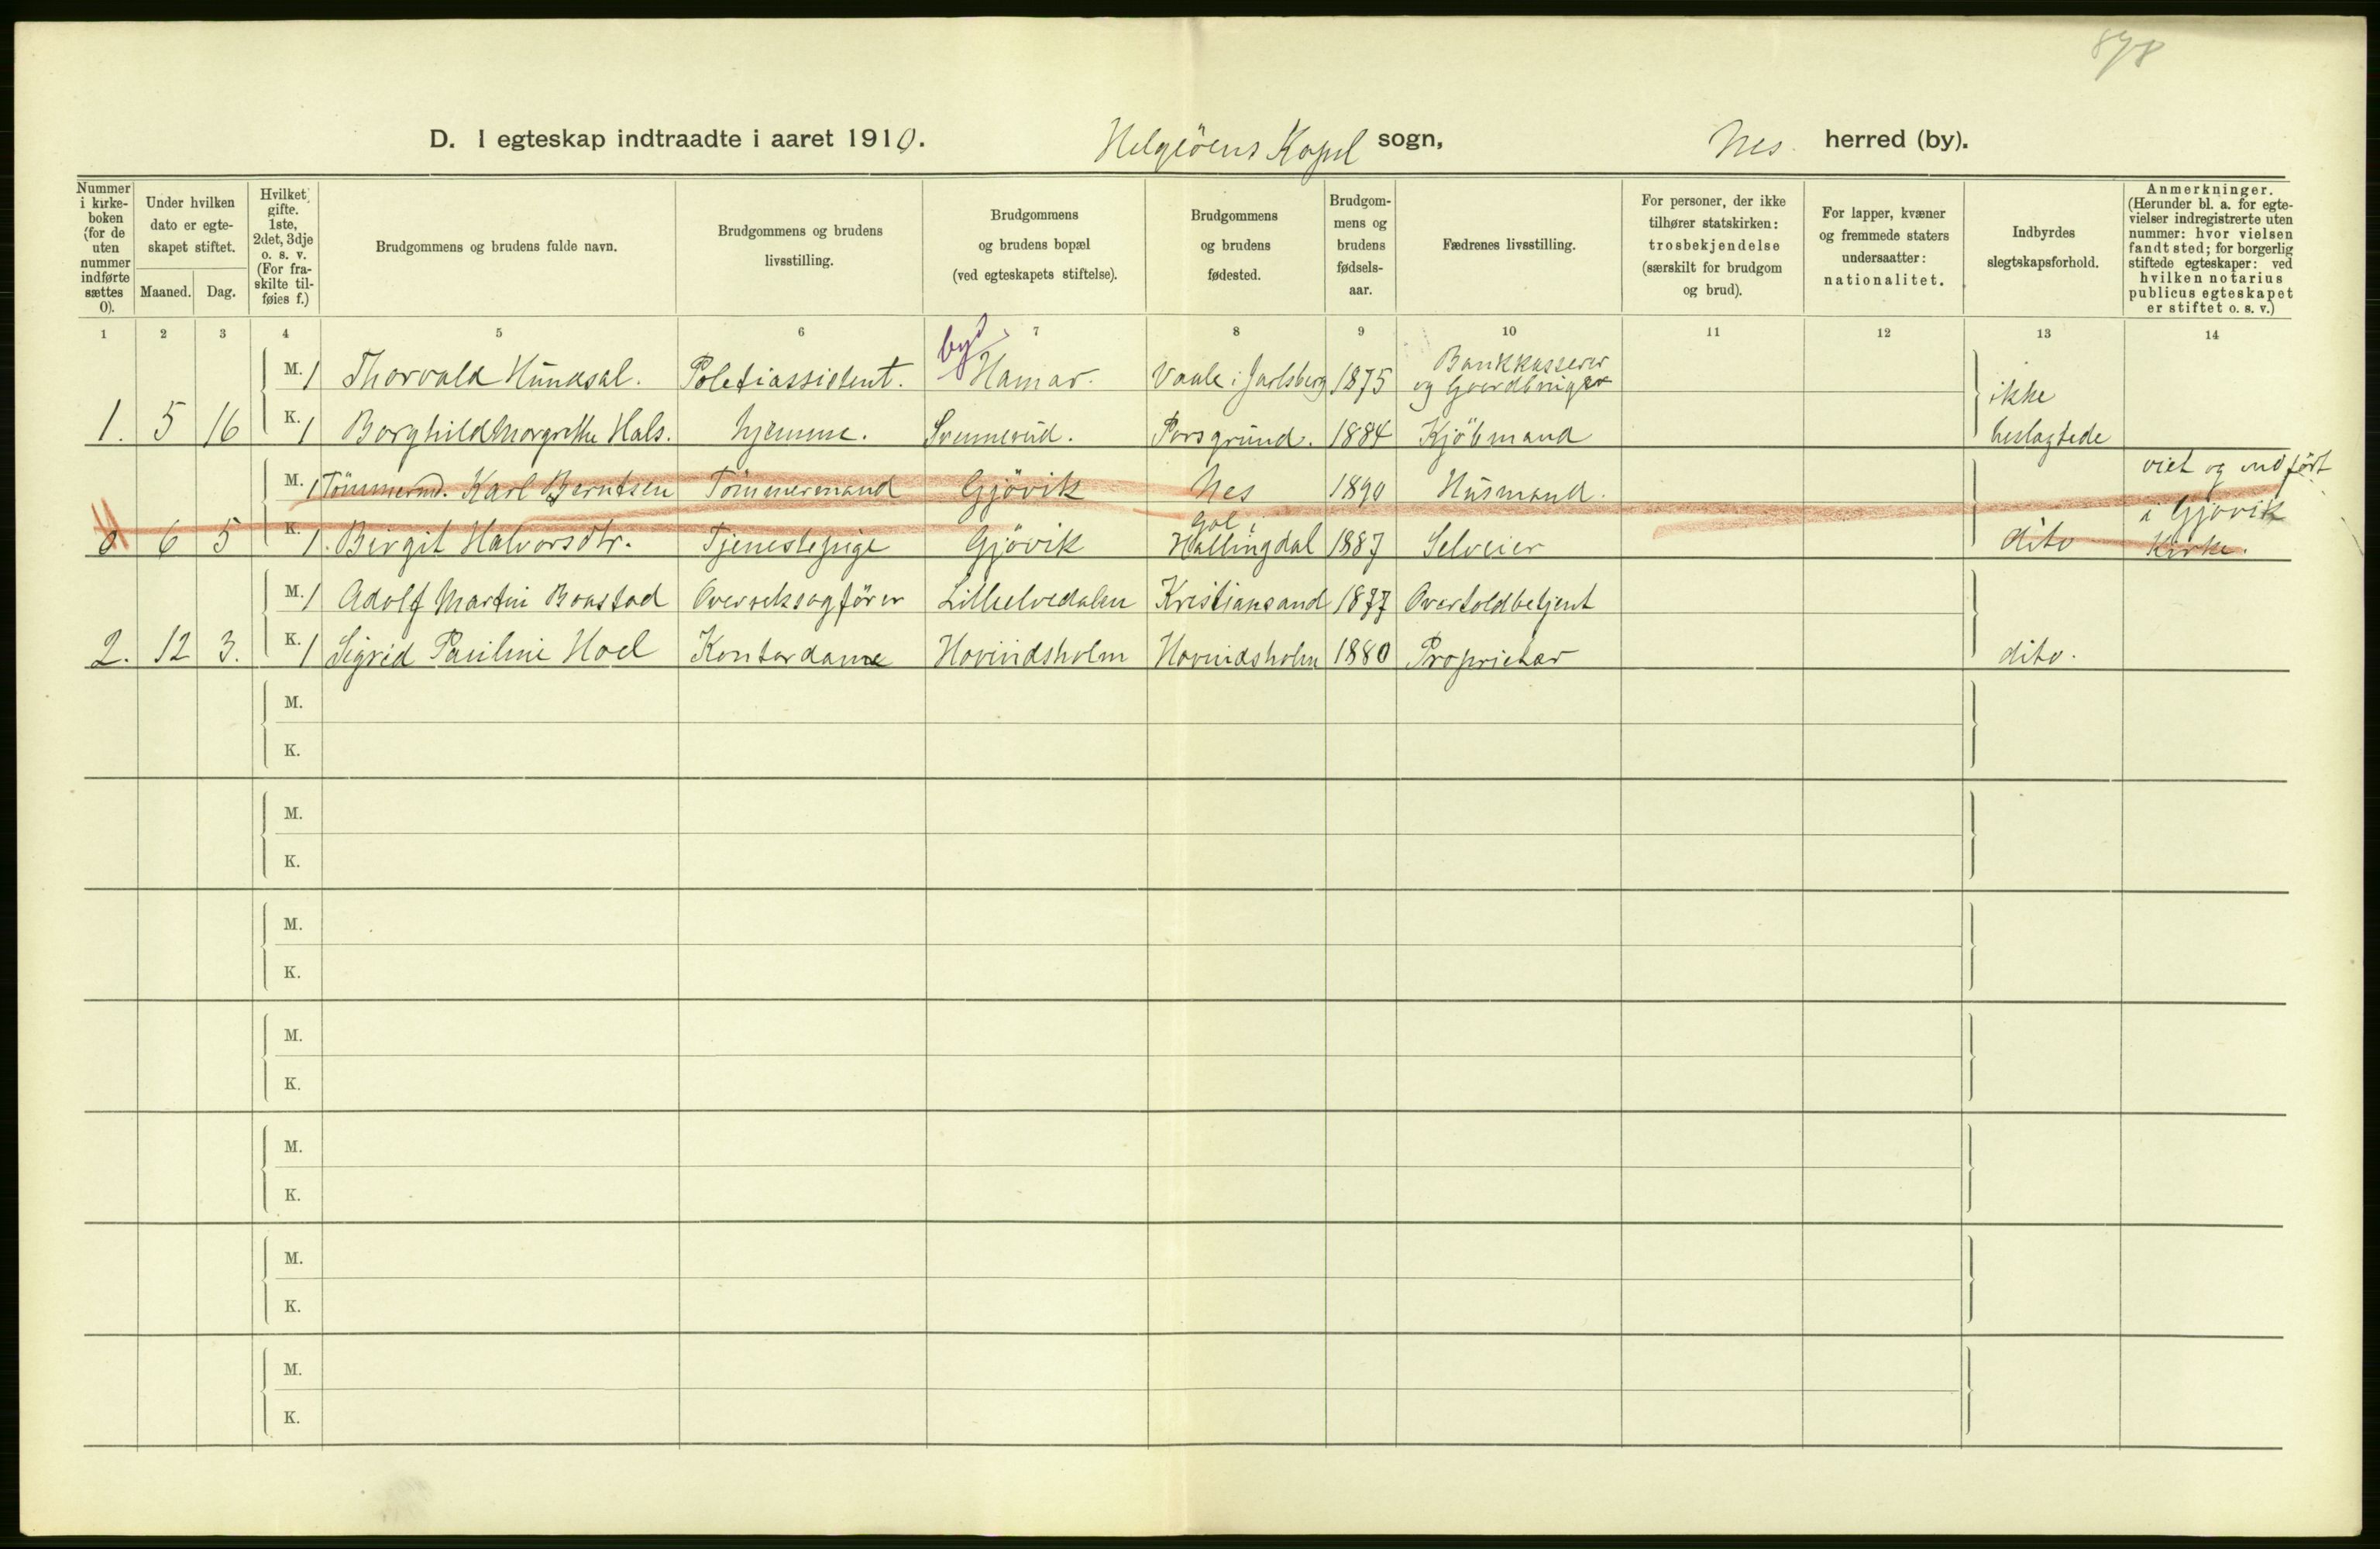 878
D. I egteskap indtraadte i aaret 1910. Helgeöens Kapel sogn, Nes herred (by).
Nummer i kirke-boken (for de uten nummer indførte sættes 0).
Under hvilken dato er egte-skapet stiftet.
Maaned. Dag.
Hvilket gifte. 1ste, 2det, 3dje o. s. v. (For fra-skilte til-føies f.)
Brudgommens og brudens fulde navn.
Brudgommens og brudens livsstilling.
Brudgommens og brudens bopæl (ved egteskapets stiftelse).
Brudgommens og brudens fødested.
Brudgom-mens og brudens fødsels-aar.
Fædrenes livsstilling.
For personer, der ikke tilhører statskirken: trosbekjendelse (særskilt for brudgom og brud).
For lapper, kvæner og fremmede staters undersaatter: nationalitet.
Indbyrdes slegtskapsforhold.
Anmerkninger. (Herunder bl. a. for egte-vielser indregistrerte uten nummer: hvor vielsen fandt sted; for borgerlig stiftede egteskaper: ved hvilken notarius publicus egteskapet er stiftet o. s. v.)
1 2 3 4 5 6 7 8 9 10 11 12 13 14
by?
M. 1 Thorvald Hunksal. Poletiassistent. Hamar. Vaale i Jarlsberg 1875 Bankkasserer og Gaardbruger
ikke
1. 5 16 K. 1 Borghild Margrethe Hals. hjemme. Svennerud. Porsgrund. 1884 Kjöbmand beslagtede
M. 1 Tömmermd. Karl Berntsen Tömmermand Gjövik Nes 1890 Husmand. viet og indført
0 6 5 K. 1. Birgit Halvorsdtr. Tjenestepige Gjövik Gol i Hallingdal 1887 Selveier dito i Gjövik Kirke.
M. 1 Adolf Martin Bonstad Overretssagförer Lilleelvedalen Kristiansand 1877 Overtoldbetjent
2. 12 3. K. 1 Sigrid Pauline Hoel Kontordame Hovindsholm Hovindsholm 1880 Proprietær dito.
M.
K.
M.
K.
M.
K.
M.
K.
M.
K.
M.
K.
M.
K.